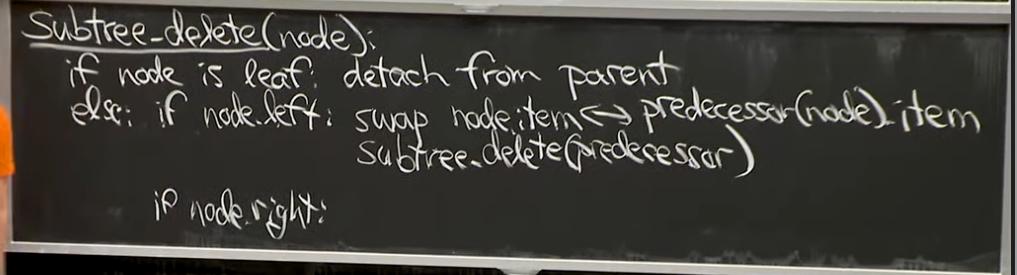 Subtree_delete(node):
if node is leaf: detach from parent
else: if node.left: swap node.item ↔ predecessor(node).item
subtree_delete(predecessor)
if node.right: